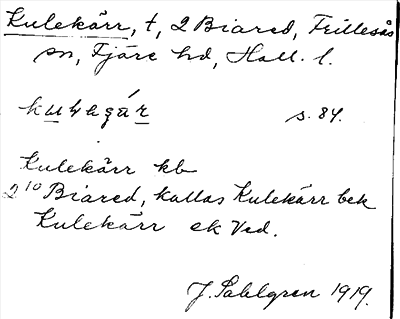 Kulekärr, t, 2 Biared, Frillesås
sn, Fjäre hd, Hall. l.
s. 84.
Kulekärr kb
2¹⁰ Biared, kallas Kulekärr bek
Kulekärr ek Ved.
J. Sahlgren 1919.